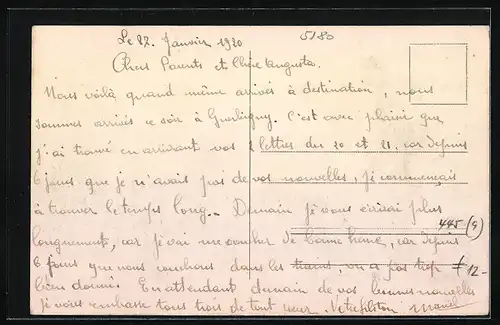 Le 27. Janvier 1920
5180
Chers Parents et chère Augusta.
Nous voilà quand même arrivés à destination, nous
sommes arrivés ce soir à . C'est avec plaisir que
j'ai trouvé en arrivant vos 2 lettres du 20 et 21. car depuis
6 jours que je n'avais pas de vos nouvelles, je commençais
à trouver le temps long.. Demain je vous écrirai plus
445 (9)
longuement, car je vai me coucher de bonne heure, car depuis
6 jours que nous couchons dans les trains, on a pas trop
12-
bien dormi. En attendant demain de vos bonnes nouvelles
je vous embrasse tous trois de tout cœur. Votre fiston